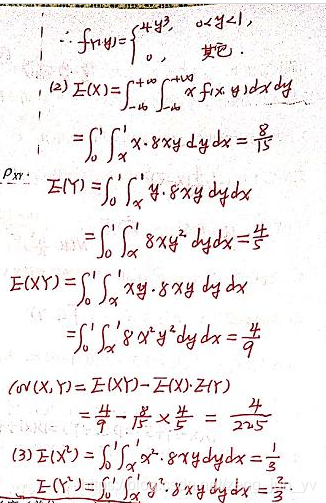 ∴ f_Y(y)={4y³, 0<y<1,
0, 其它.
(2) E(X)=∫_{-∞}^{+∞}∫_{-∞}^{+∞} x f(x,y)dxdy
=∫_0^1∫_x^1 x·8xy dydx=8/15
ρ_{XY}.
E(Y)=∫_0^1∫_x^1 y·8xy dydx
=∫_0^1∫_x^1 8xy² dydx=4/5
E(XY)=∫_0^1∫_x^1 xy·8xy dydx
=∫_0^1∫_x^1 8x²y² dydx=4/9
Cov(X,Y)=E(XY)-E(X)·E(Y)
=4/9-8/15×4/5=4/225
(3) E(X²)=∫_0^1∫_x^1 x²·8xydydx=1/3
E(Y²)=∫_0^1∫_x^1 y²·8xydydx=2/3